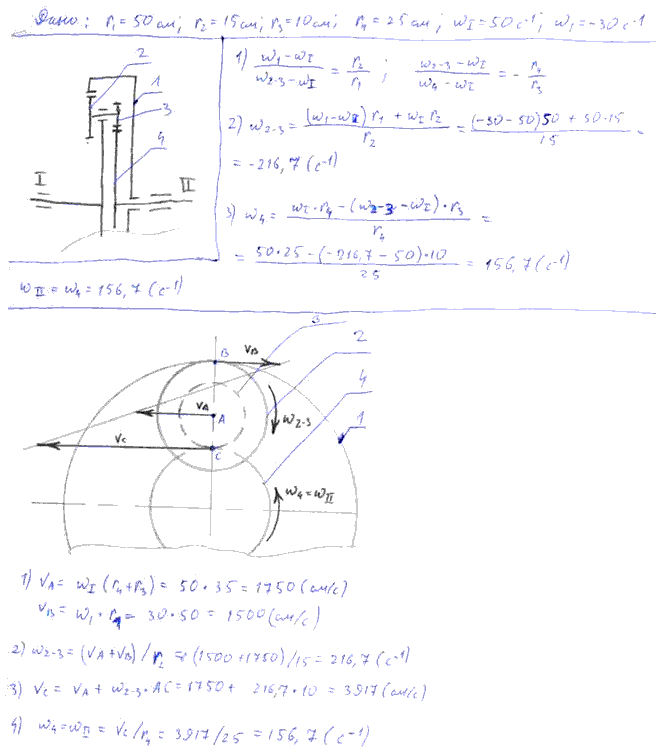 Дано: r₁ = 50 см; r₂ = 15 см; r₃ = 10 см; r₄ = 25 см; ω_I = 50 с⁻¹; ω₁ = -30 с⁻¹
2
1
3
4
I
II
1) (ω₁ - ω_I)/(ω₂₋₃ - ω_I) = r₂/r₁; (ω₂₋₃ - ω_I)/(ω₄ - ω_I) = - r₄/r₃
2) ω₂₋₃ = ((ω₁ - ω_I) r₁ + ω_I r₂)/r₂ = ((-30 - 50)50 + 50·15)/15 =
= -216,7 (с⁻¹)
3) ω₄ = (ω_I · r₄ - (ω₂₋₃ - ω_I) · r₃)/r₄ =
= (50·25 - (-216,7 - 50)·10)/25 = 156,7 (с⁻¹)
ω_II = ω₄ = 156,7 (с⁻¹)
3
B
V_B
2
4
1
V_A
A
ω₂₋₃
V_C
C
ω₄ = ω_II
1) V_A = ω_I (r₄ + r₃) = 50 · 35 = 1750 (см/с)
V_B = ω₁ · r₁ = 30 · 50 = 1500 (см/с)
2) ω₂₋₃ = (V_A + V_B)/r₂ = (1500 + 1750)/15 = 216,7 (с⁻¹)
3) V_C = V_A + ω₂₋₃ · AC = 1750 + 216,7 · 10 = 3917 (см/с)
4) ω₄ = ω_II = V_C/r₄ = 3917/25 = 156,7 (с⁻¹)